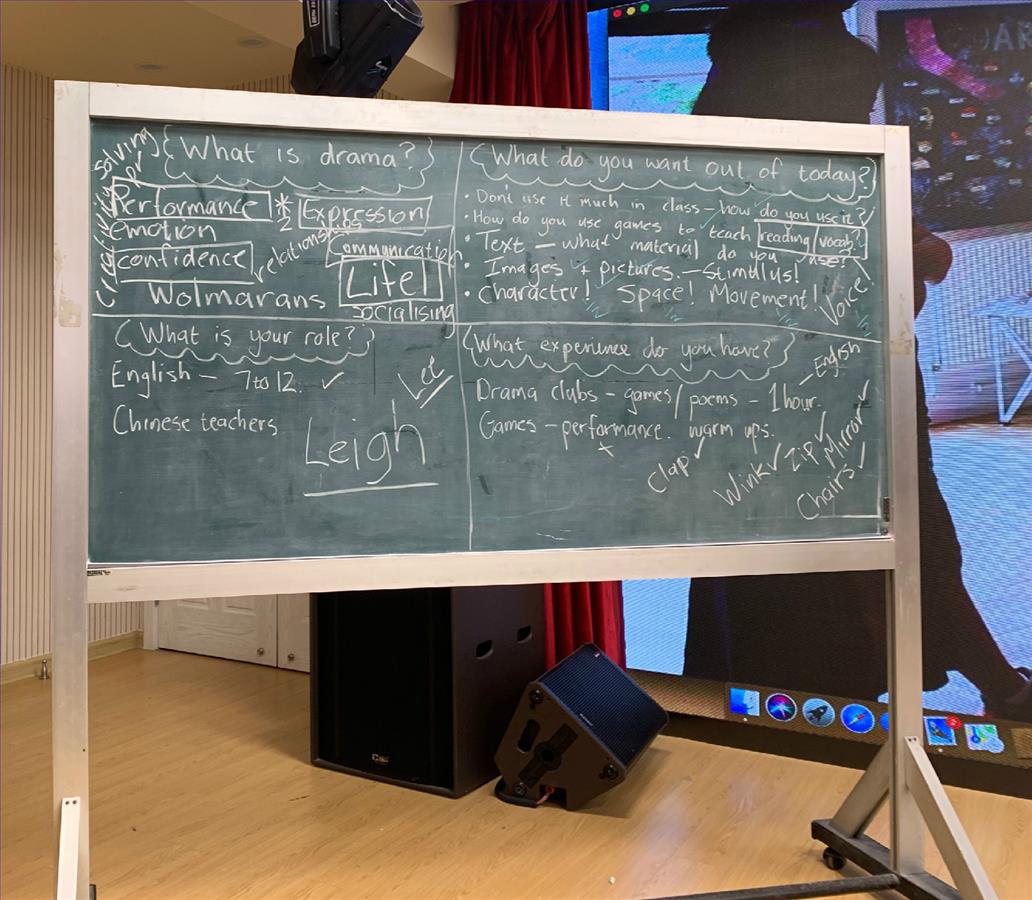 What is drama?
Creativity solving pr
Performance * 2 Expression
emotion relationships
confidence Communication
Life!
Wolmarans
Socialising
What do you want out of today?
• Don't use it much in class – how do you use it?
• How do you use games to teach reading vocab
• Text – what material do you use?
• Images + pictures. – Stimulus!
• Character! Space! Movement! Voice!
What is your role?
English – 7 to 12 ✓
Chinese teachers
Let
Leigh
What experience do you have?
English
Drama clubs – games/poems – 1 hour.
Games – performance. warm ups.
Clap ✓ Wink ✓ Zip ✓ Mirror ✓
Chairs ✓